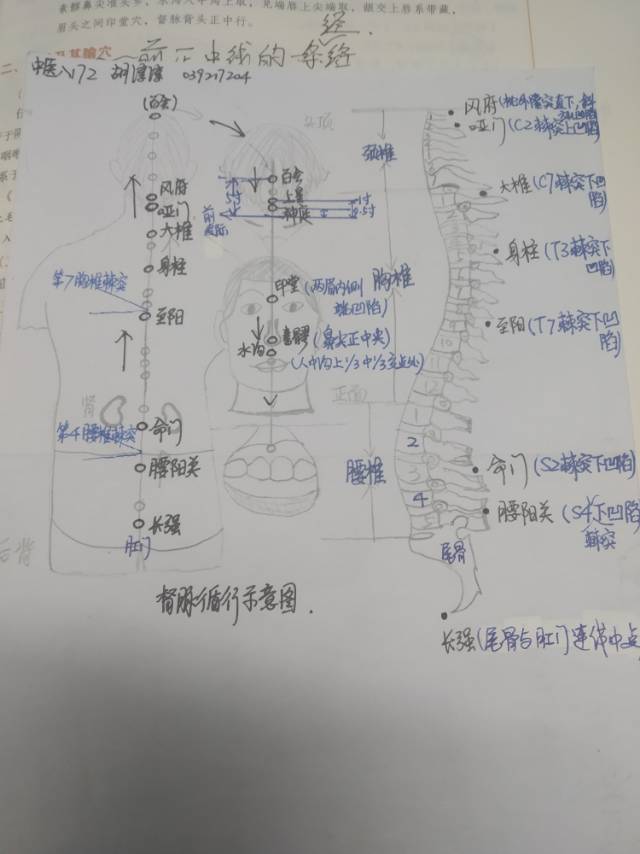 素髎鼻尖准头乡，水沟人中沟上取，兑端唇上尖端取，龈交上唇系带藏，
眉头之间印堂穴，督脉背头正中行。
经
二、
其腧穴
前正中线的一条络
中医八172 胡滢滢 039217204
(百会)
风府
哑门
大椎
身柱
第7胸椎棘突
至阳
肾
命门
第4腰椎棘突
腰阳关
长强
肛门
后背
头顶
百会
5寸
上星
1寸
神庭
0.5寸
前发际
印堂(两眉内侧端凹陷)
素髎(鼻尖正中央)
水沟
(人中沟上1/3中1/3交点处)
正面
颈椎
胸椎
腰椎
1
2
3
4
尾骨
风府(枕外隆突直下,
哑门(C2棘突上凹陷)
大椎(C7棘突下凹陷)
身柱(T3棘突下凹陷)
至阳(T7棘突下凹陷)
命门(S2棘突下凹陷)
腰阳关(S4下凹陷
棘突
长强(尾骨与肛门连线中点
督脉循行示意图.